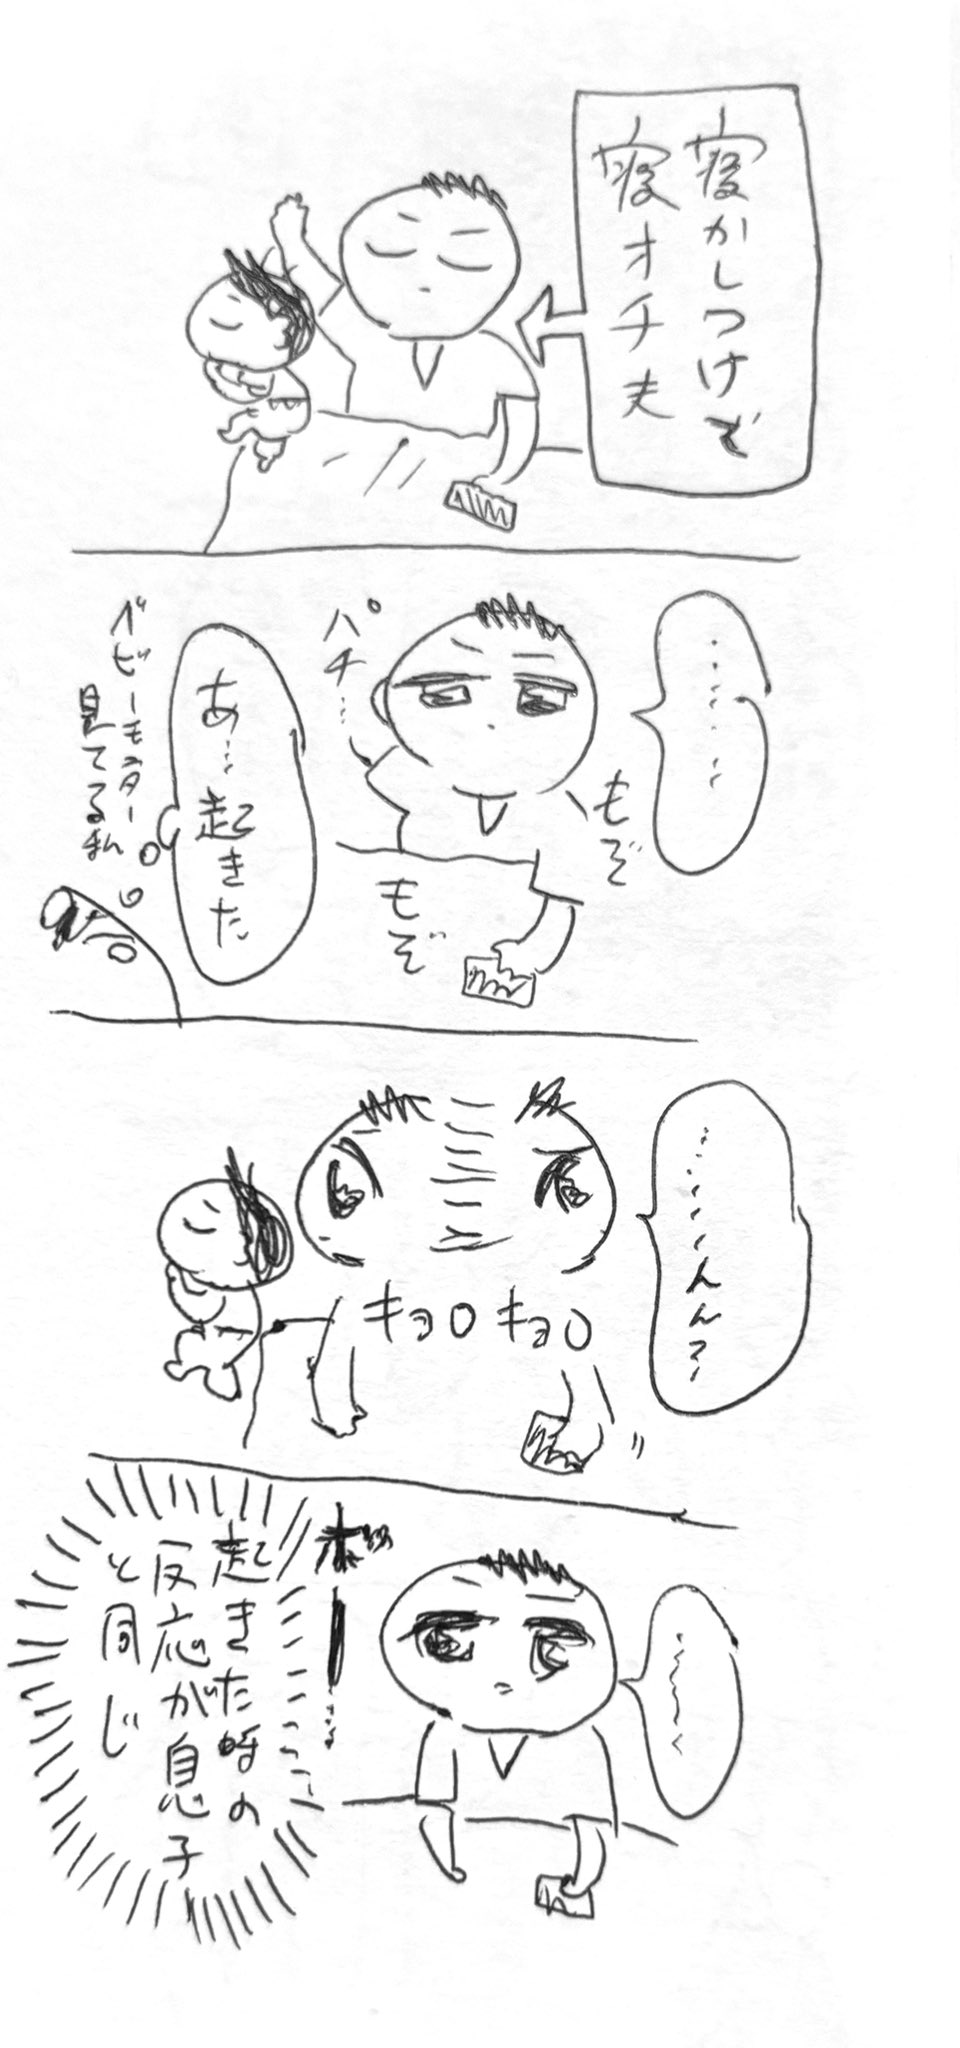 寝かしつけで
寝オチ夫
・・・・・・
パチ…
もぞ
もぞ
あ…起きた
ベビーモニター
見てる私
……んん？
キョロキョロ
ボー……
起きた時の
反応が息子
と同じ